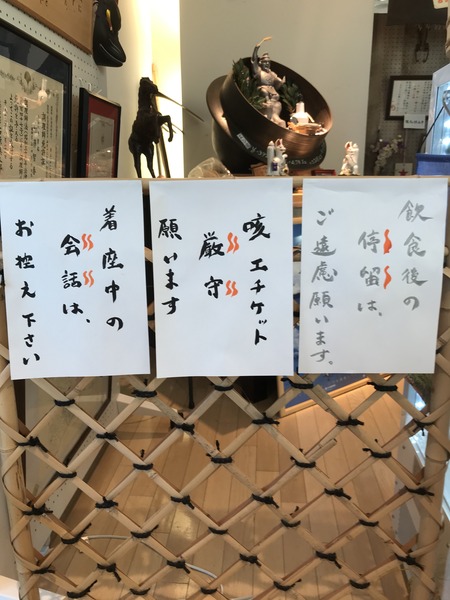 飲食後の
停留は、
ご遠慮願います。
咳エチケット
厳守
願います
着座中の
会話は、
お控え下さい